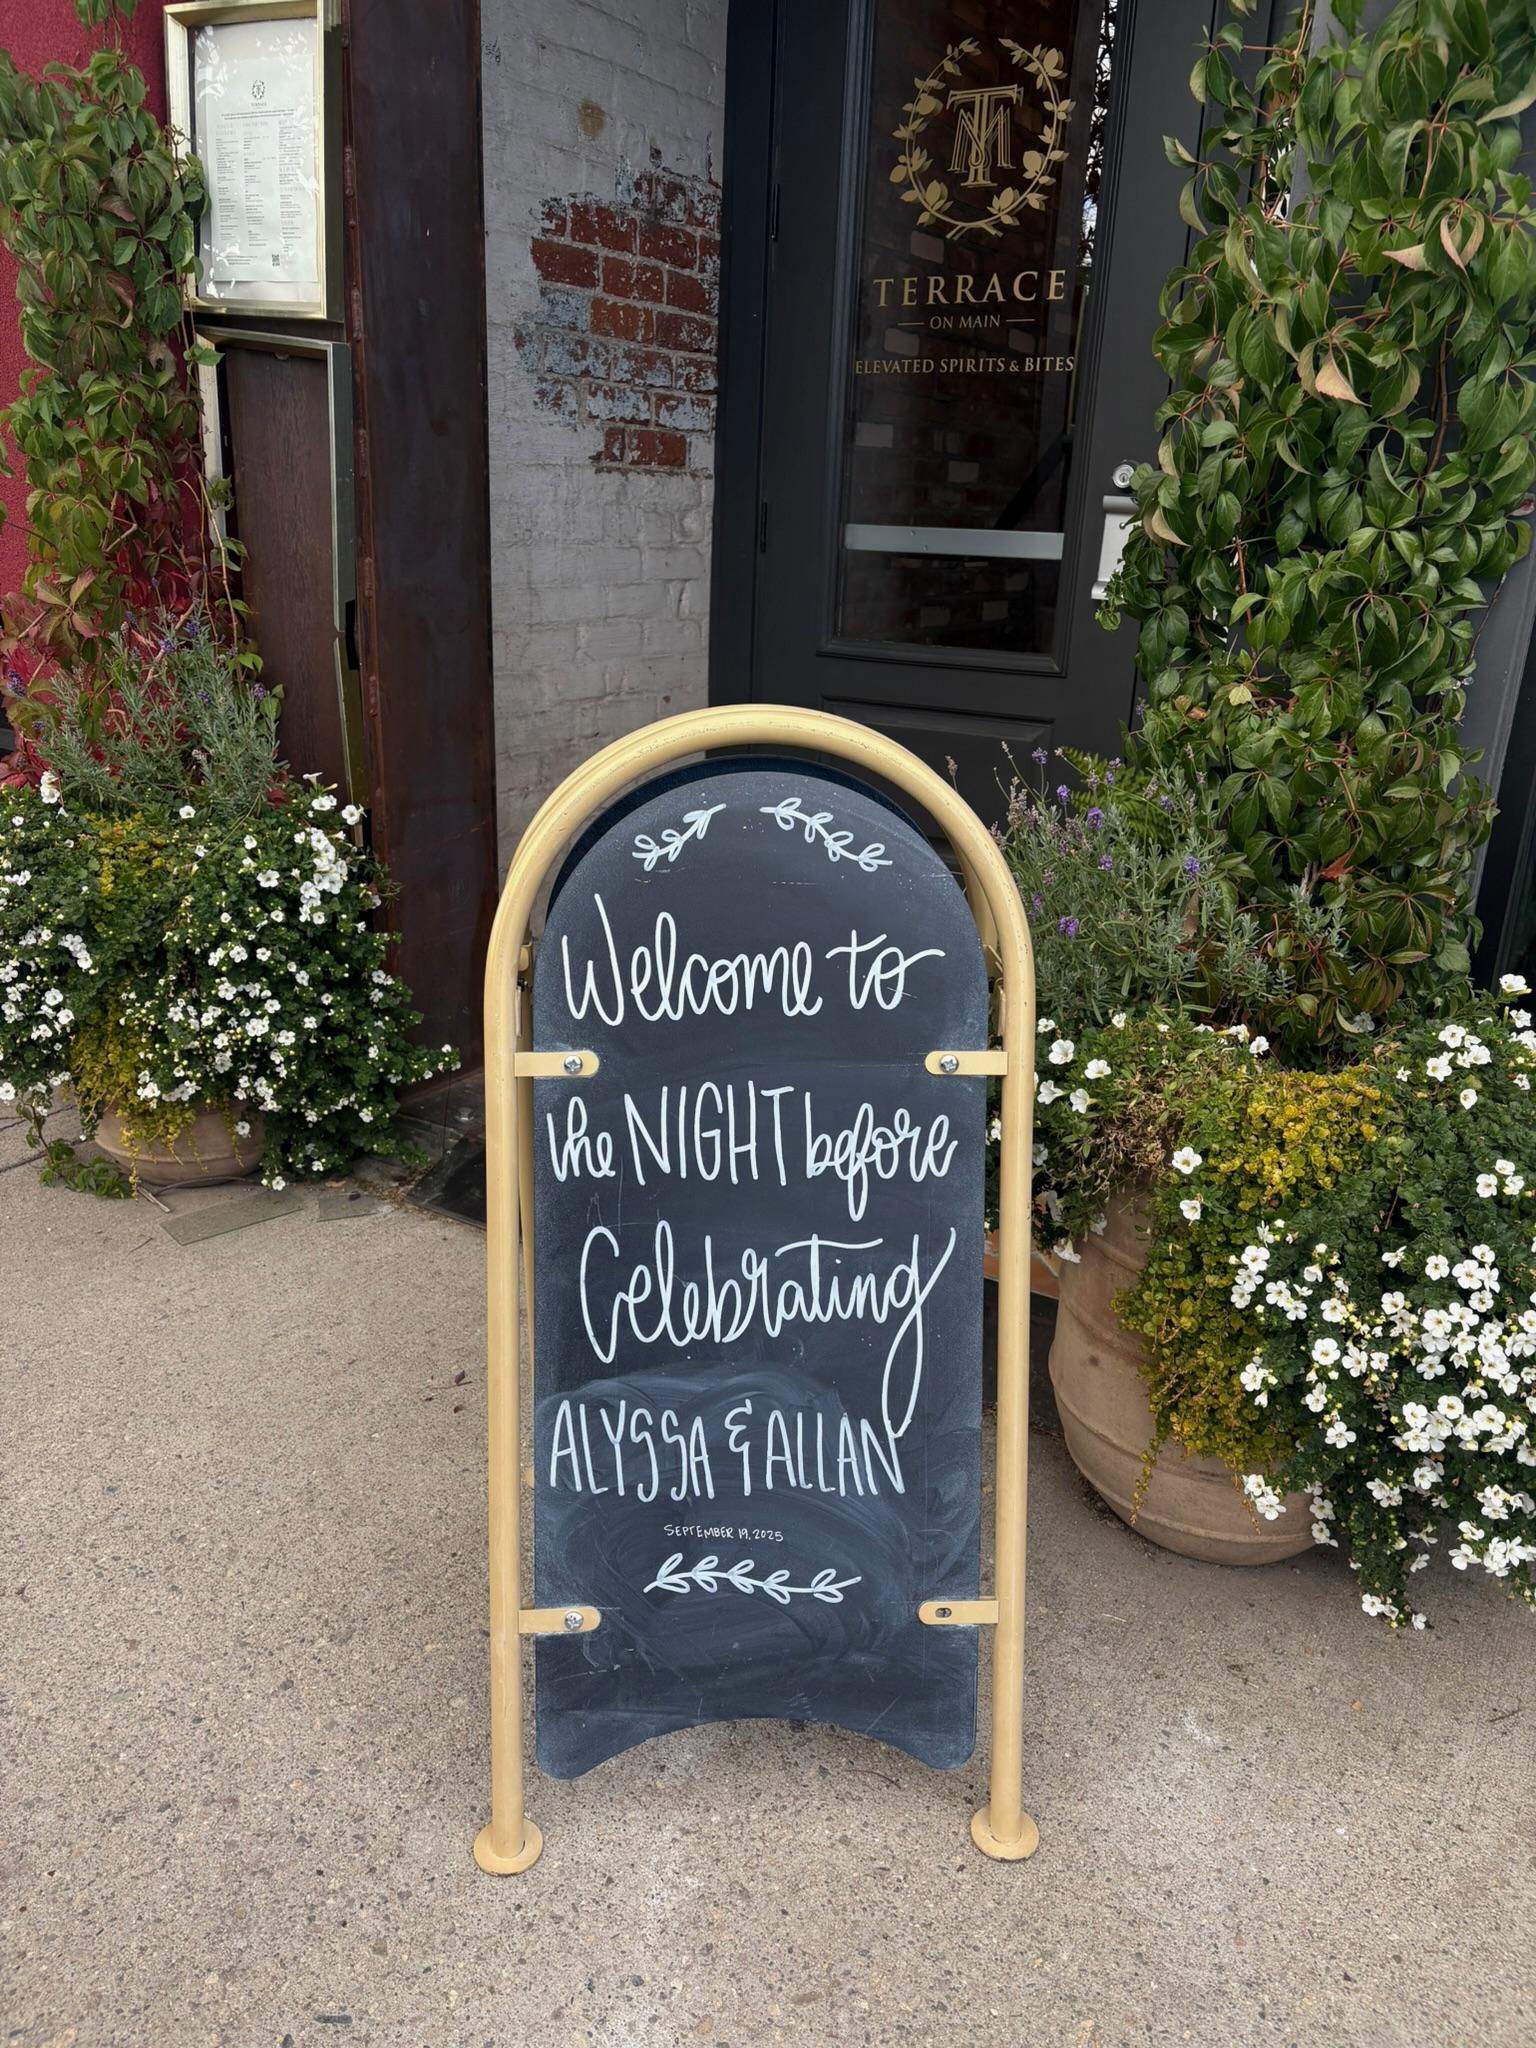 TERRACE
TM
TERRACE
ON MAIN
ELEVATED SPIRITS & BITES
Welcome to
the NIGHT before
Celebrating
ALYSSA & ALLAN
SEPTEMBER 19, 2025